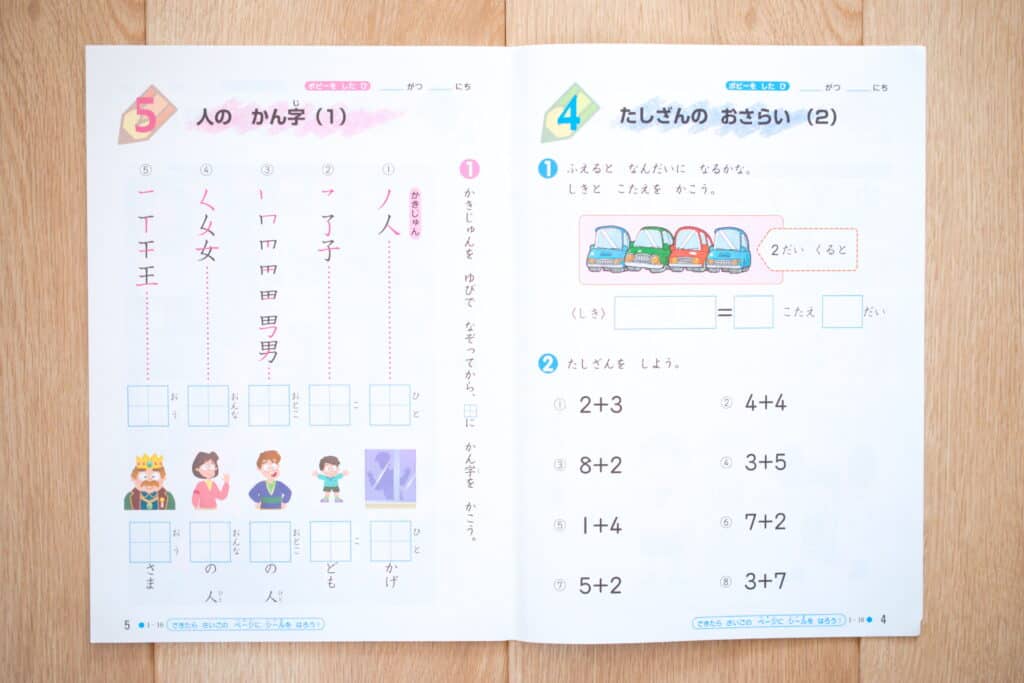 5
人の かん字(1)
じ
ポピーを した ひ
がつ にち
1
かきじゅんを ゆびで なぞってから、 に かん字を かこう。
かきじゅん
①
ノ人
ひと
ひと
かげ
②
了子
こ
こ
ども
③
男
おとこ
おとこ
の人
ひと
④
く 女
おんな
おんな
の人
ひと
⑤
一 T 干 王
おう
おう
さま
5 ●1-10 できたら さいごの ページに シールを はろう!
4
たしざんの おさらい(2)
ポピーを した ひ
がつ にち
1 ふえると なんだいに なるかな。
しきと こたえを かこう。
2だい くると
〈しき〉 = こたえ だい
2 たしざんを しよう。
① 2+3 ② 4+4
③ 8+2 ④ 3+5
⑤ 1+4 ⑥ 7+2
⑦ 5+2 ⑧ 3+7
できたら さいごの ページに シールを はろう! 1-10● 4